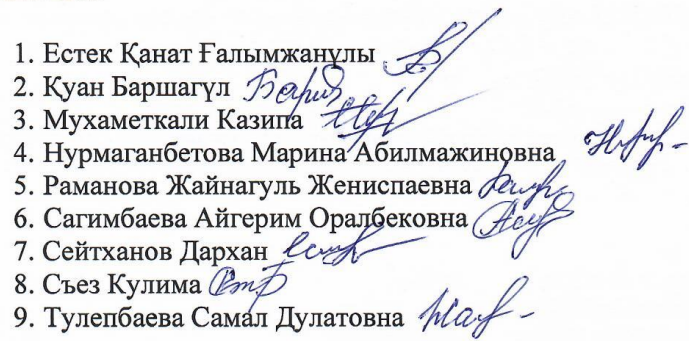 1. Естек Қанат Ғалымжанұлы
2. Қуан Баршагүл
3. Мухаметкали Казипа
4. Нурмаганбетова Марина Абилмажиновна
5. Раманова Жайнагуль Жениспаевна
6. Сагимбаева Айгерим Оралбековна
7. Сейтханов Дархан
8. Съез Кулима
9. Тулепбаева Самал Дулатовна